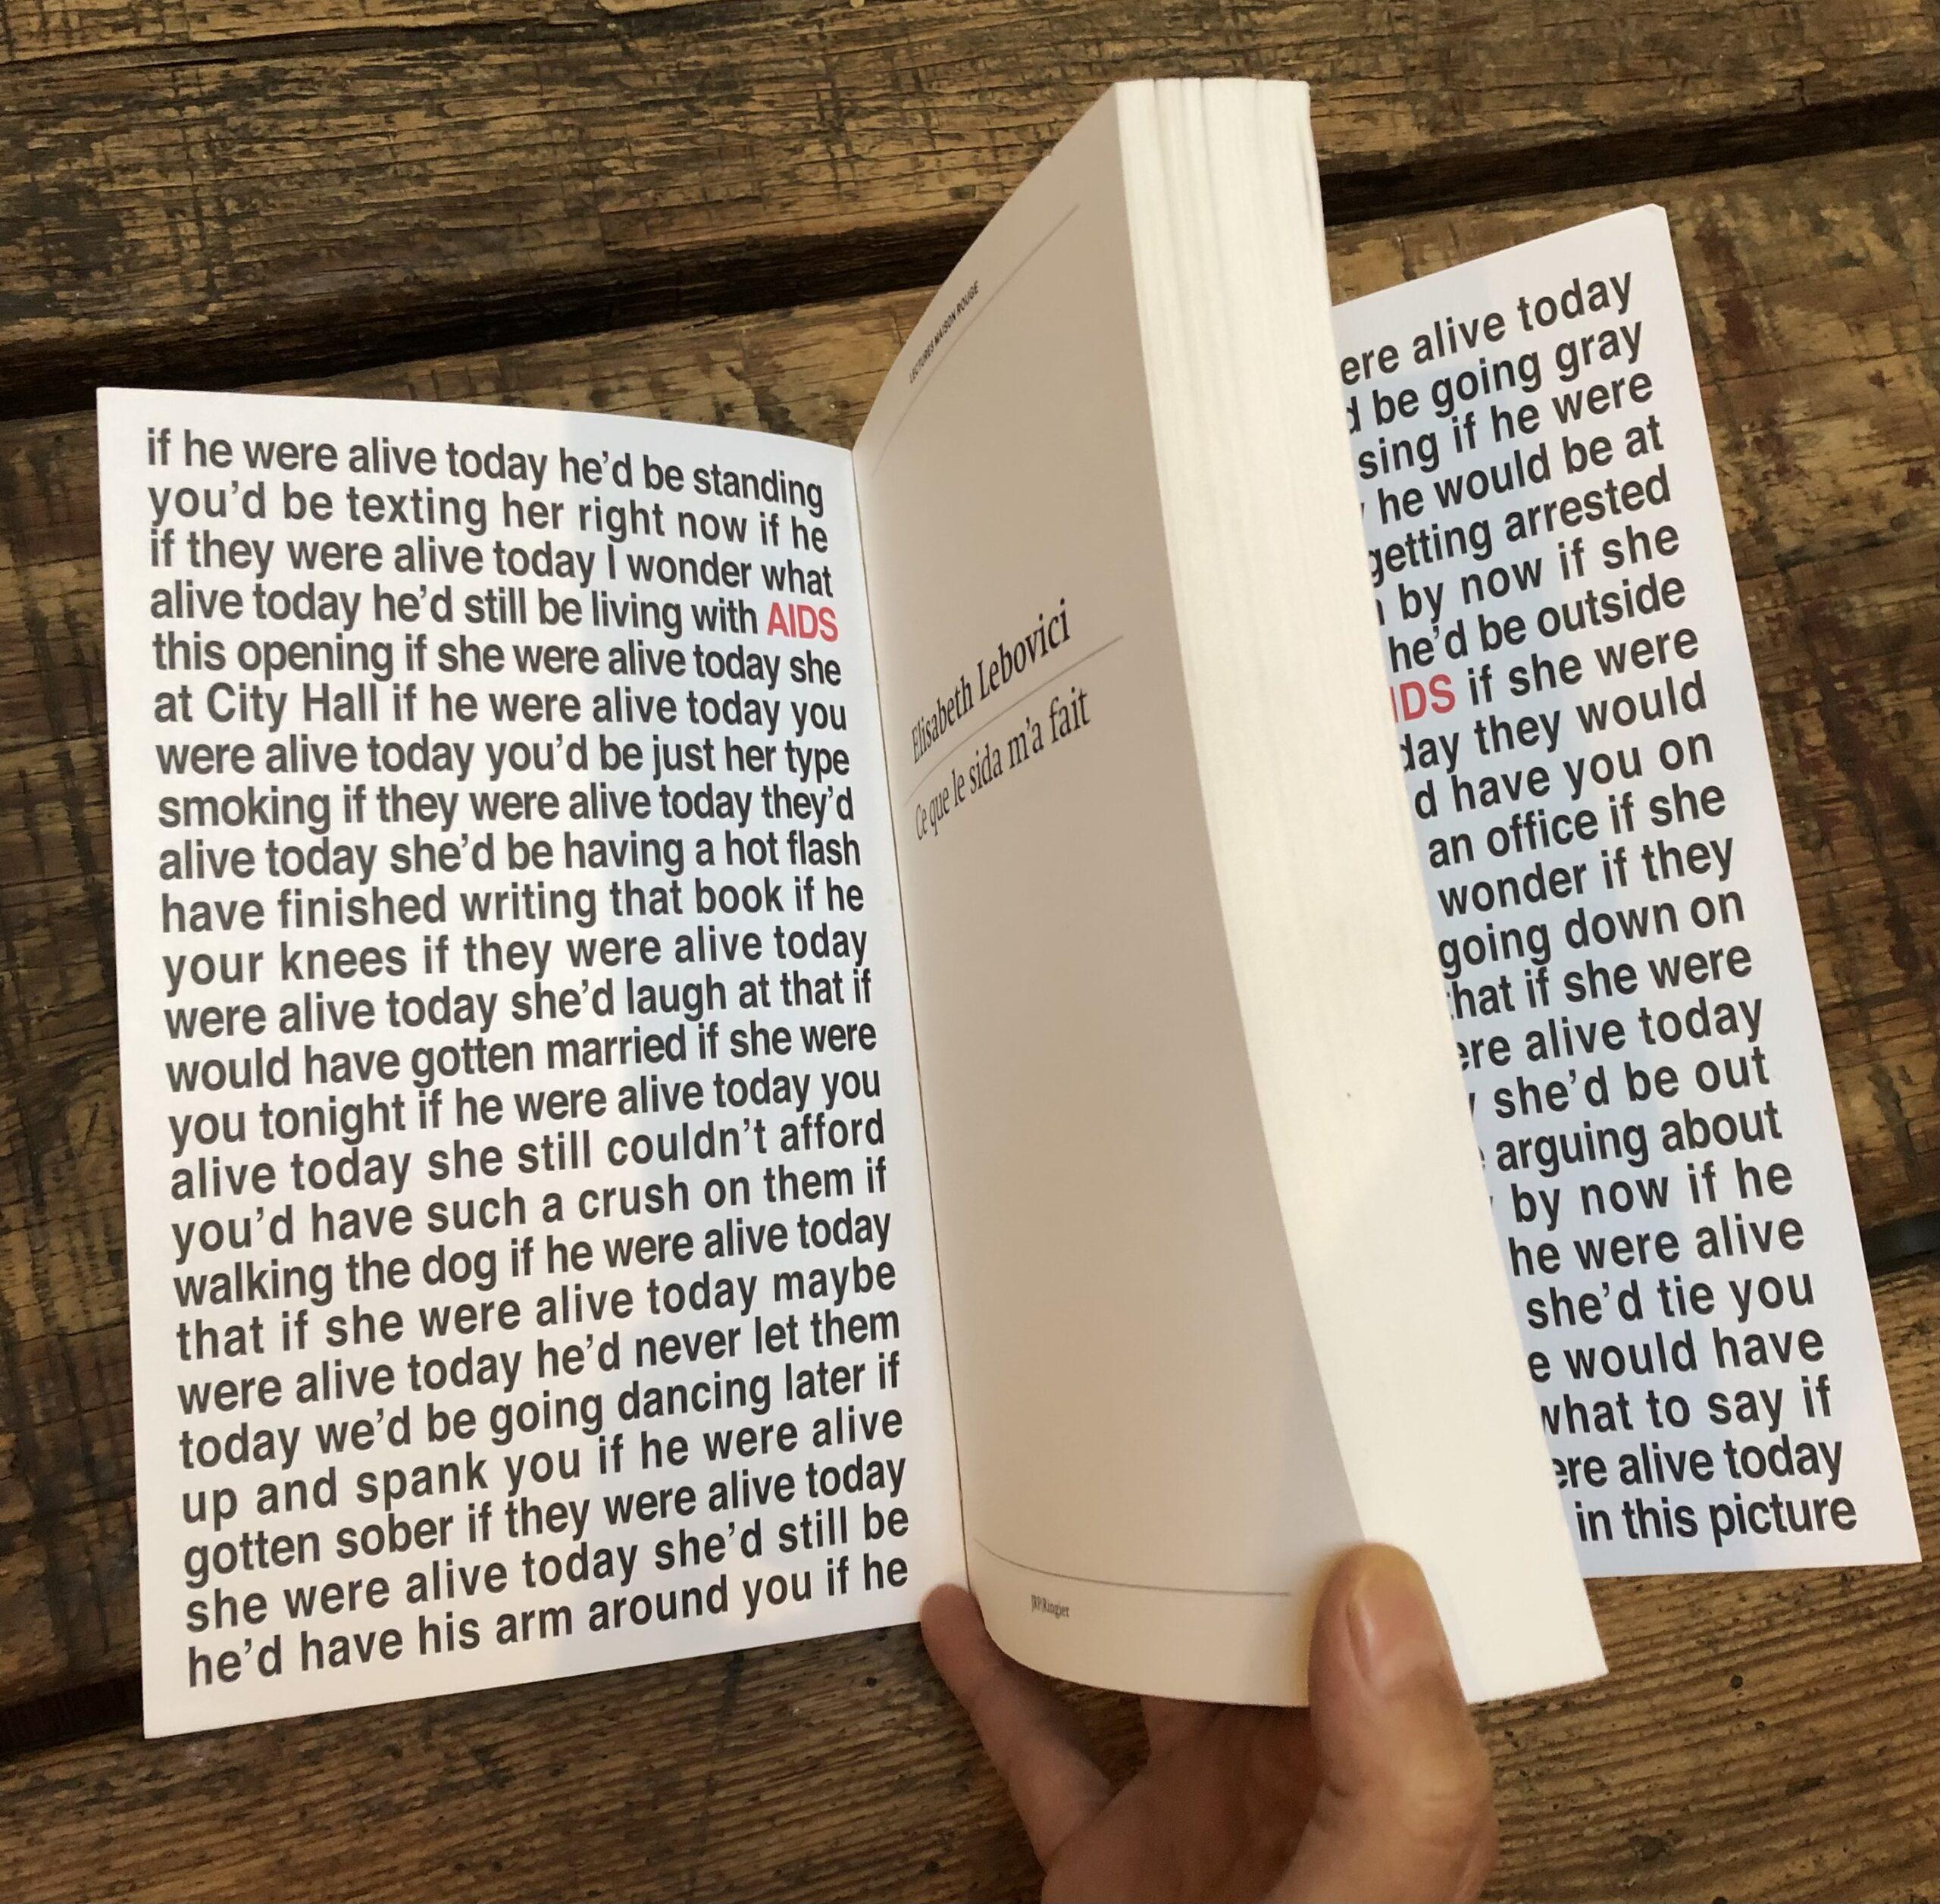 if he were alive today he’d be standing
you’d be texting her right now if he
if they were alive today I wonder what
alive today he’d still be living with AIDS
this opening if she were alive today she
at City Hall if he were alive today you
were alive today you’d be just her type
smoking if they were alive today they’d
alive today she’d be having a hot flash
have finished writing that book if he
your knees if they were alive today
were alive today she’d laugh at that if
would have gotten married if she were
you tonight if he were alive today you
alive today she still couldn’t afford
you’d have such a crush on them if
walking the dog if he were alive today
that if she were alive today maybe
were alive today he’d never let them
today we’d be going dancing later if
up and spank you if he were alive
gotten sober if they were alive today
she were alive today she’d still be
he’d have his arm around you if he
LECTURES MAISON ROUGE
Elisabeth Lebovici
Ce que le sida m’a fait
JRP|Ringier
alive today
be going gray
sing if he were
he would be at
getting arrested
by now if she
he’d be outside
IDS if she were
day they would
have you on
an office if she
wonder if they
going down on
hat if she were
ere alive today
she’d be out
arguing about
by now if he
he were alive
she’d tie you
e would have
what to say if
ere alive today
in this picture